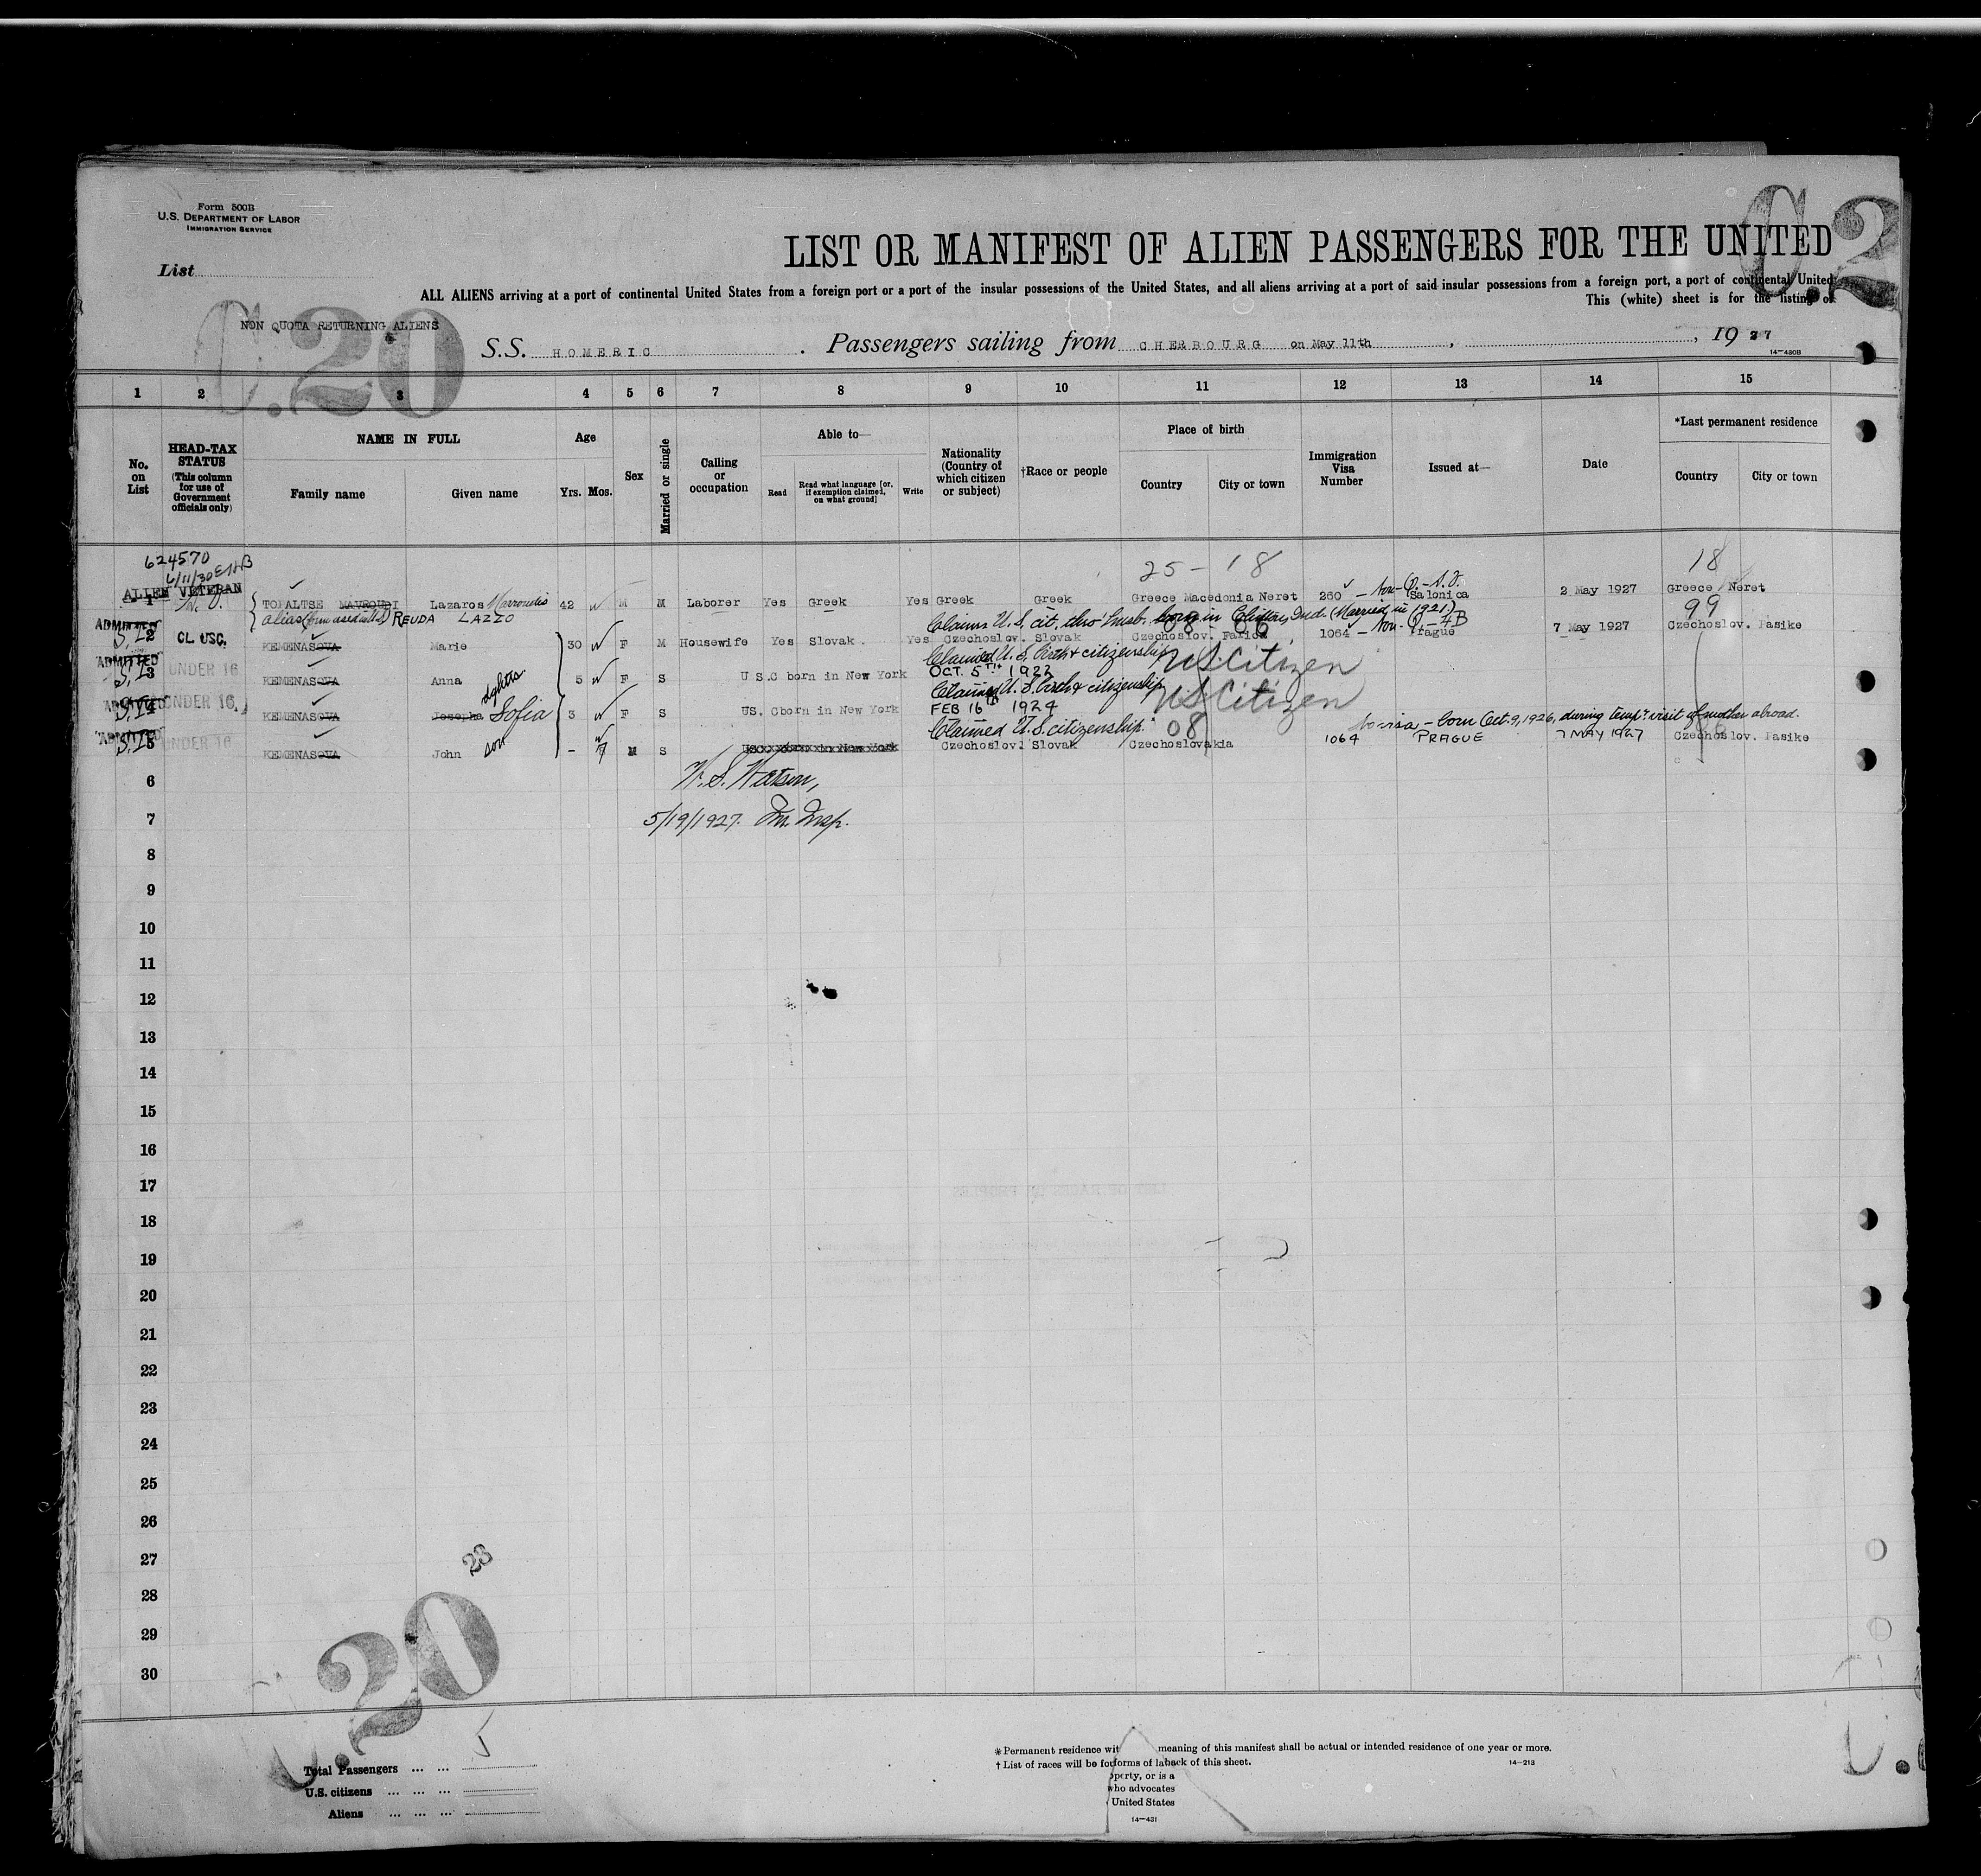 Form 500B
U.S. DEPARTMENT OF LABOR
IMMIGRATION SERVICE
C.2
LIST OR MANIFEST OF ALIEN PASSENGERS FOR THE UNITED
List
ALL ALIENS arriving at a port of continental United States from a foreign port or a port of the insular possessions of the United States, and all aliens arriving at a port of said insular possessions from a foreign port, a port of continental United
This (white) sheet is for the listing of
C.20
NON QUOTA RETURNING ALIENS
S.S. HOMERIC . Passengers sailing from CHERBOURG on May 11th , , 19 27
14—430B
1 2 3 4 5 6 7 8 9 10 11 12 13 14 15
No. on List
HEAD-TAX STATUS (This column for use of Government officials only)
NAME IN FULL
Family name Given name
Age
Yrs. Mos.
Sex
Married or single
Calling or occupation
Able to—
Read Read what language [or, if exemption claimed, on what ground] Write
Nationality (Country of which citizen or subject)
†Race or people
Place of birth
Country City or town
Immigration Visa Number
Issued at—
Date
*Last permanent residence
Country City or town
624570
6/11/30 EHB
25 - 18 18
ALIEN VETERAN
1 TOPALTSE MAVROUDI Lazaros Mavroudis 42 M M Laborer Yes Greek Yes Greek Greek Greece Macedonia Neret 260 - Non-Q. - Salonica 2 May 1927 Greece Neret
alias REUDA LAZZO
Claims U.S. cit. thro' husb. born in Ind. (Married in 1921.) 99
08 06
ADMITTED
2 CL USC. KEMENASOVA Marie 30 F M Housewife Yes Slovak Yes Czechoslov. Slovak Czechoslov. 1064 - Non-Q - 4B Prague 7 May 1927 Czechoslov. Pasike
Claimed U.S. birth & citizenship US Citizen
ADMITTED
3 UNDER 16 KEMENASOVA Anna 5 F S U S.C born in New York OCT. 5TH 1922
Claimed U.S. birth & citizenship US Citizen
4 UNDER 16 KEMENASOVA Josepha Sofia 3 F S US. Cborn in New York FEB 16th 1924
Claimed U.S. citizenship. 08 No visa - born Oct. 9, 1926, during temp'y visit of mother abroad.
ADMITTED
5 UNDER 16 KEMENASOVA John son - 7 M S Czechoslov. Slovak Czechoslovakia 1064 PRAGUE 7 MAY 1927 Czechoslov. Pasike
W. S. Watson,
6
5/19/1927. Im. Insp.
7
8
9
10
11
12
13
14
15
16
17
18
19
20
21
22
23
24
25
26
27
28
29
30
23
C.20
5
Total Passengers ... ...
U.S. citizens ... ... ...
Aliens ... ... ...
* Permanent residence wit meaning of this manifest shall be actual or intended residence of one year or more.
† List of races will be fo forms of la back of this sheet.
14—213
operty, or is a
who advocates
United States
14—431